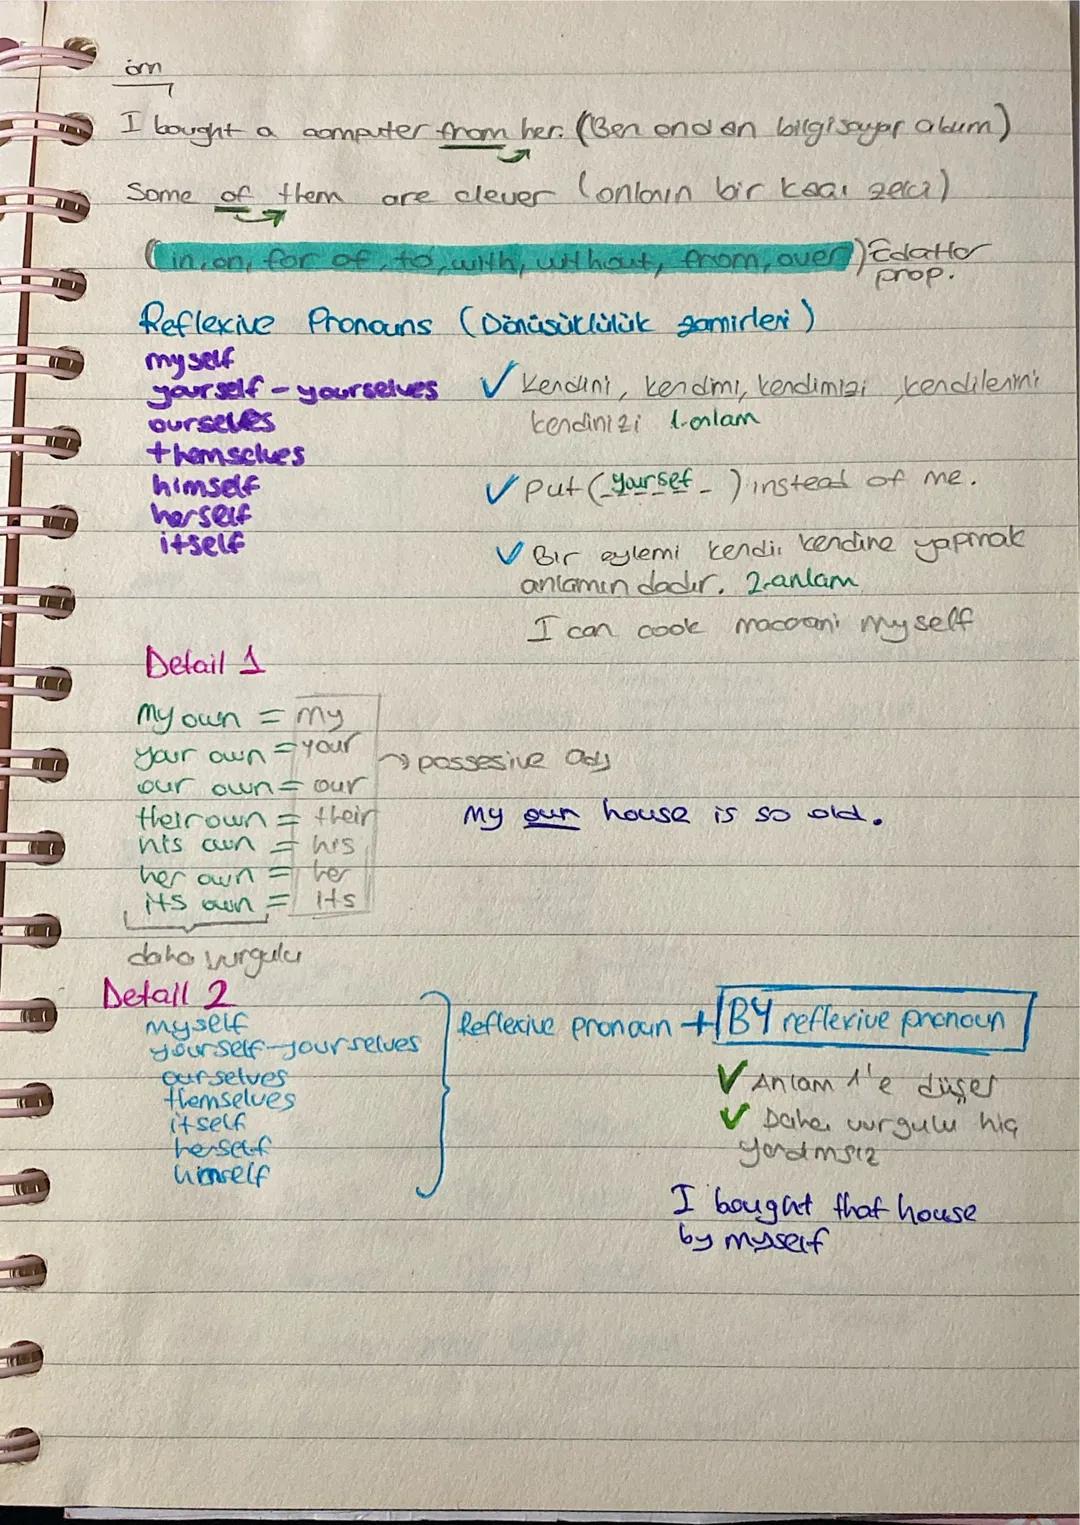 örn
I bought a computer from her. (Ben ondan bilgisayar aldım)
Some of them are clever (onların bir kısmı zeki)
(in, on, for of, to, with, without, from, over) Edatlar
prop.
Reflexive Pronouns (Dönüşüklülük zamirleri)
myself
yourself - yourselves
ourselves
themselves
himself
herself
itself
✓ Kendini, kendimi, kendimizi, kendilerini
kendinizi 1.anlam
✓ Put (_yoursef_) instead of me.
✓ Bir eylemi kendi kendine yapmak
anlamındadır. 2.anlam
I can cook macaroni myself
Detail 1
My own = my
your own = your
our own = our
their own = their
his own = his
her own = her
its own = its
→ possesive Adj
My own house is so old.
daha vurgulu
Detail 2
myself
yourself-yourselves
ourselves
themselves
itself
herself
himself
Reflexive pronoun + BY reflexive pronoun
✓ Anlam 1'e düşer
✓ Daha vurgulu hiç
yardımsız
I bought that house
by myself